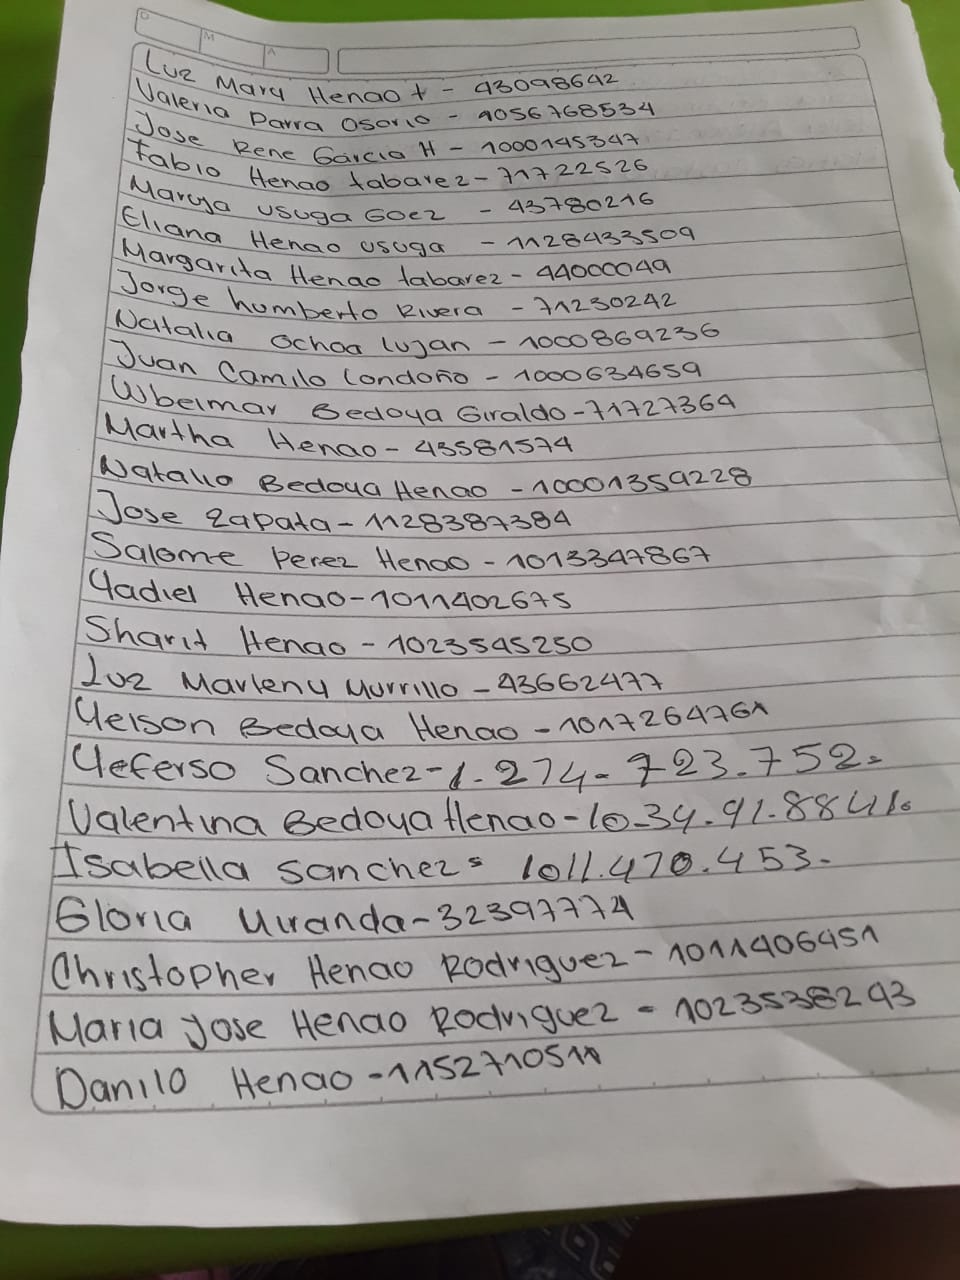 D M A
Luz Mary Henao t - 43098642
Valeria Parra Osorio - 1056768534
Jose Rene Garcia H - 1000145347
Fabio Henao tabarez - 71722526
Maruja usuga Goez - 43780216
Eliana Henao usuga - 1128433509
Margarita Henao tabarez - 44000049
Jorge humberto Rivera - 71230242
Natalia Ochoa lujan - 1000869236
Juan Camilo londoño - 1000634659
Wbeimar Bedoya Giraldo - 71727364
Martha Henao - 43581574
Natalia Bedoya Henao - 10001359228
Jose zapata - 1128387384
Salome perez Henao - 1013347867
Yadiel Henao - 1011402675
Sharit Henao - 1023545250
Luz Marleny Murrillo - 43662477
Yeison Bedoya Henao - 1017264761
Yeferso Sanchez - 1.274.723.752.
Valentina Bedoya Henao -
Isabella sanchez = 1011.470.453.
Gloria Miranda - 32397774
Christopher Henao Rodriguez - 1011406451
Maria jose Henao Rodriguez - 1023538243
Danilo Henao -